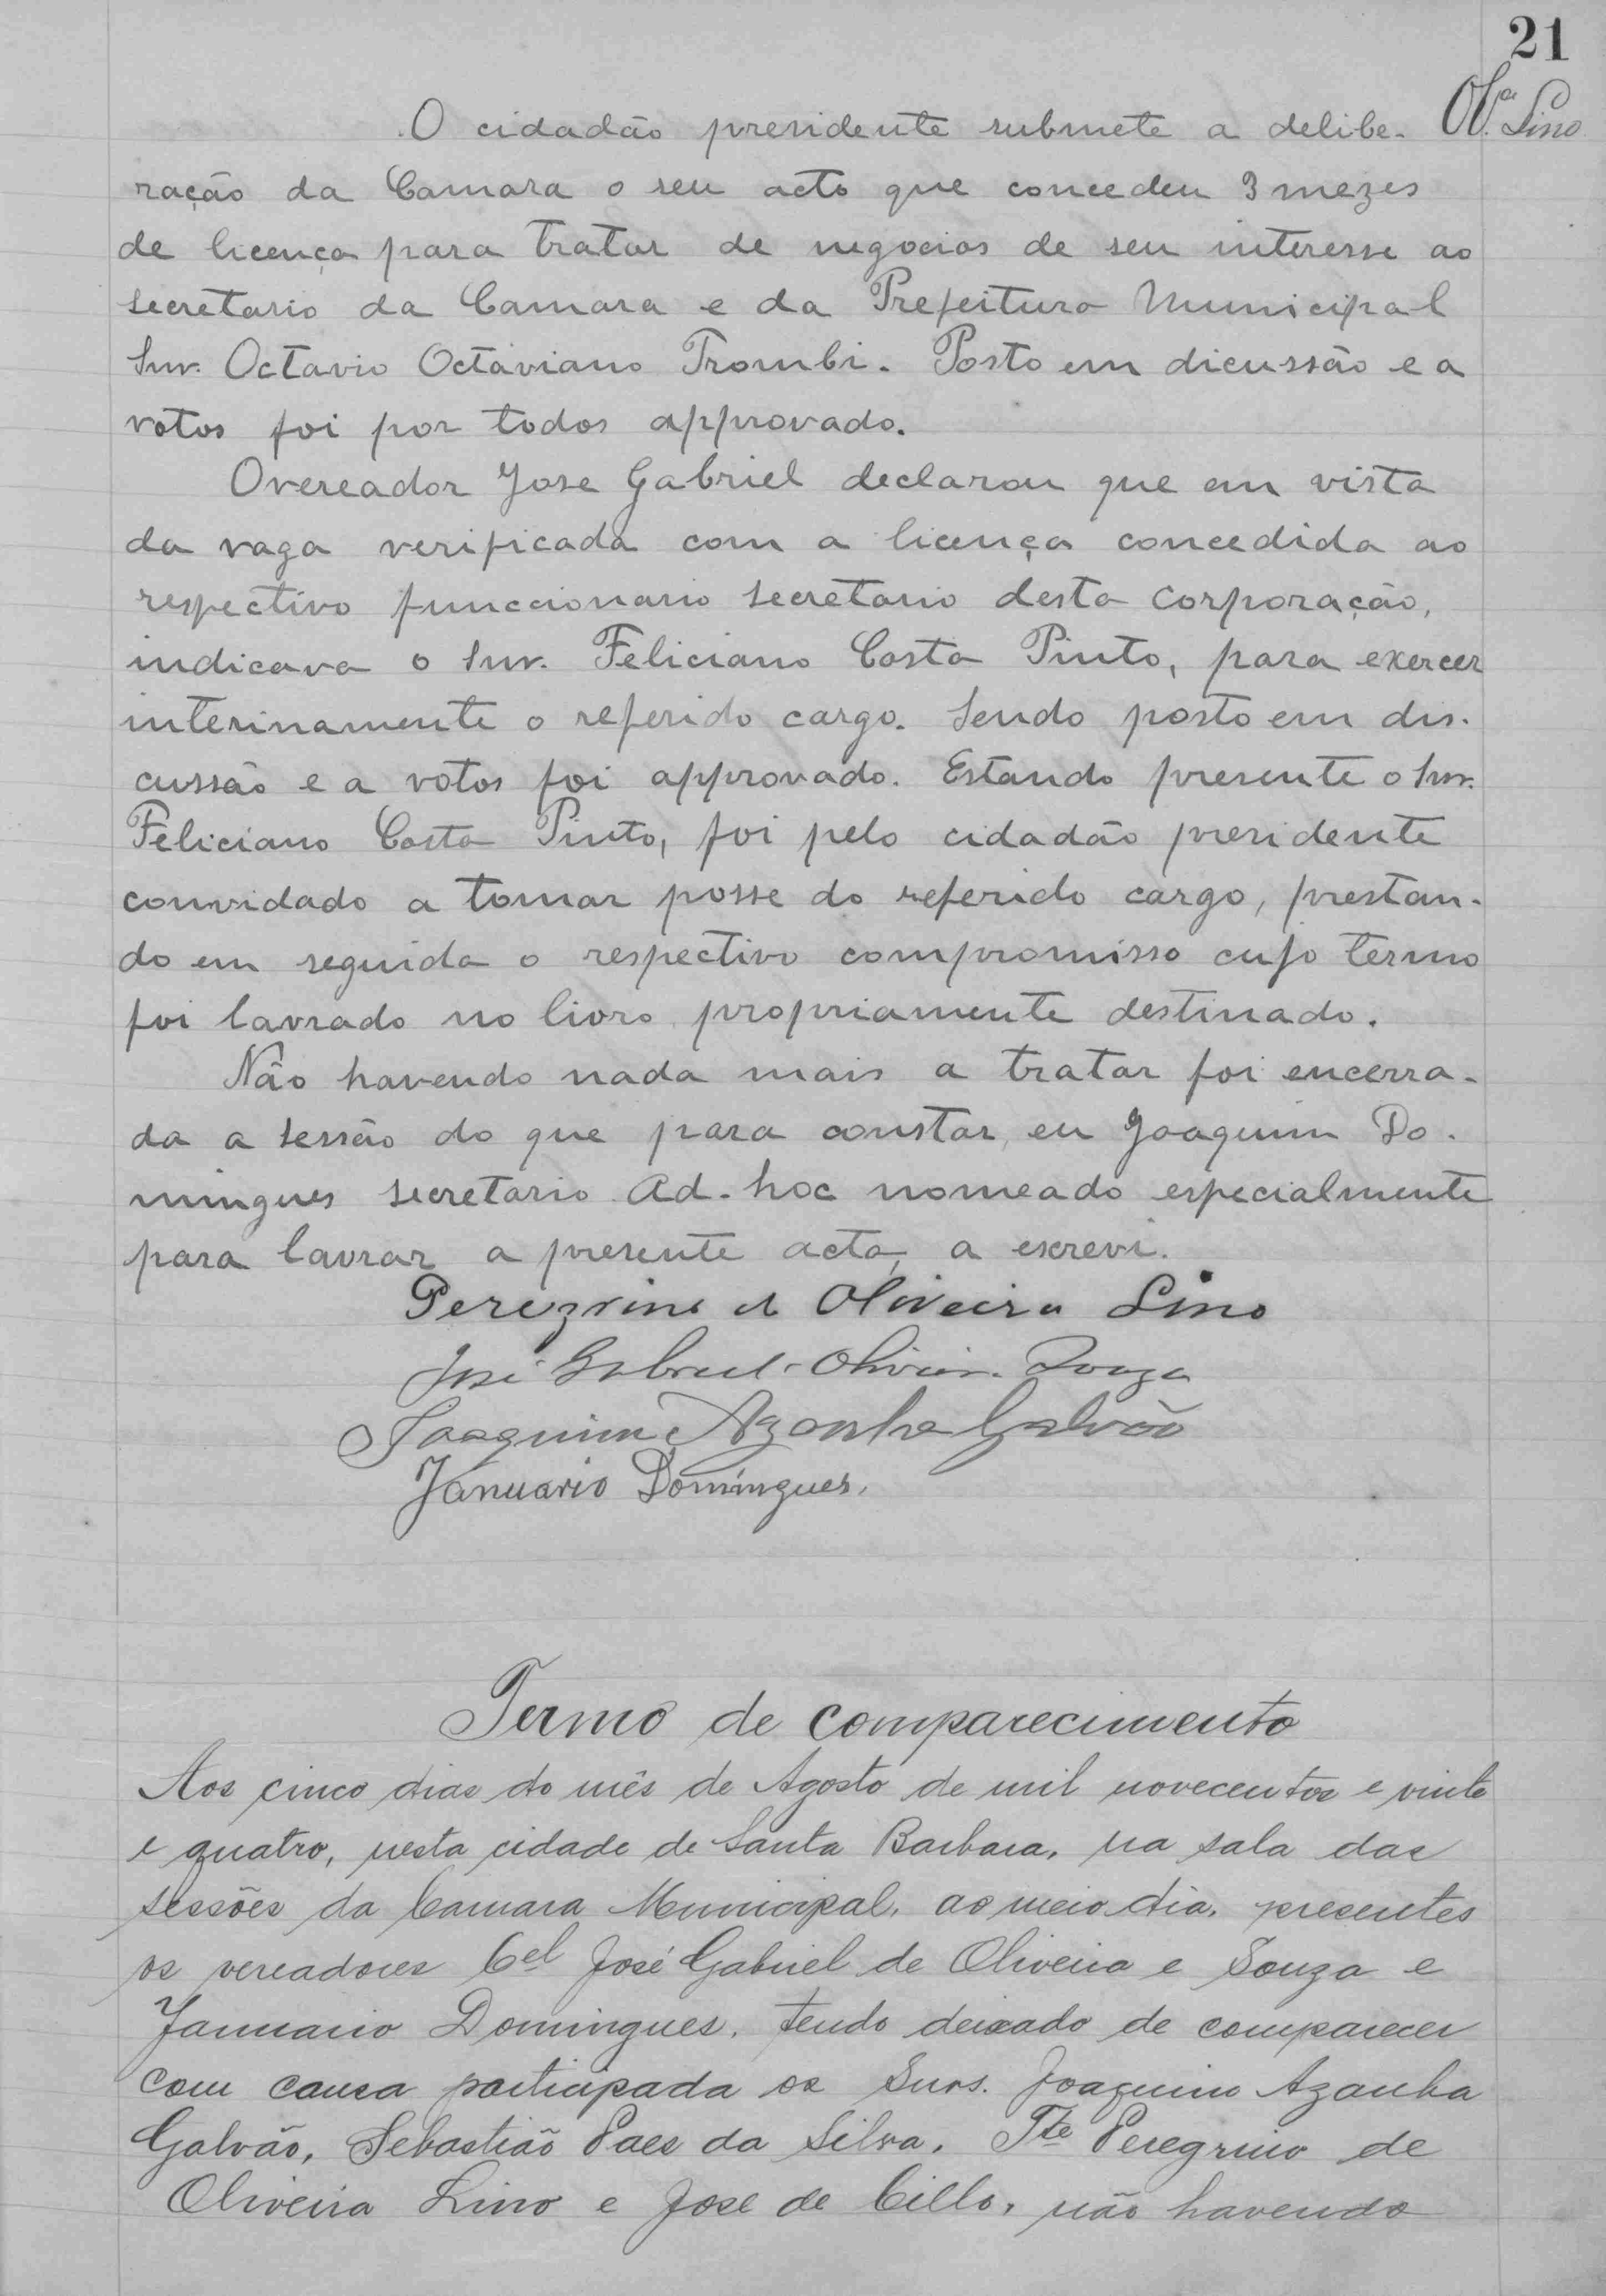 21
Olª. Lino
O cidadão presidente submete a delibe-
ração da Camara o seu acto que concedeu 3 mezes
de licença para tratar de negocios de seu interesse ao
secretario da Camara e da Prefeitura Municipal
Snr. Octavio Octaviano Trombi. Posto em dicussão e a
votos foi por todos approvado.
O vereador Jose Gabriel declarou que em vista
da vaga verificada com a licença concedida ao
respectivo funccionario secretario desta corporação,
indicava o Snr. Feliciano Costa Pinto, para exercer
interinamente o referido cargo. Sendo posto em dis-
cussão e a votos foi approvado. Estando presente o Snr.
Feliciano Costa Pinto, foi pelo cidadão presidente
convidado a tomar posse do referido cargo, prestan-
do em seguida o respectivo compromisso cujo termo
foi lavrado no livro propriamente destinado.
Não havendo nada mais a tratar foi encerra-
da a sessão do que para constar, eu Joaquim Do-
mingues secretario Ad-hoc nomeado especialmente
para lavrar a presente acta, a escrevi.
Peregrino d Oliveira Lino
José Gabriel Oliveira Souza
Joaquim Azanha Galvão
Januario Domingues.
Termo de comparecimento
Aos cinco dias do mês de Agosto de mil novecentos e vinte
e quatro, nesta cidade de Santa Barbara, na sala das
sessões da Camara Municipal, ao meio dia, presentes
os vereadores Cel José Gabriel de Oliveira e Souza e
Januario Domingues, tendo deixado de comparecer
com causa participada os Snrs. Joaquim Azanha
Galvão, Sebastião Paes da Silva, Tte Peregrino de
Oliveira Lino e José de Cillo, não havendo